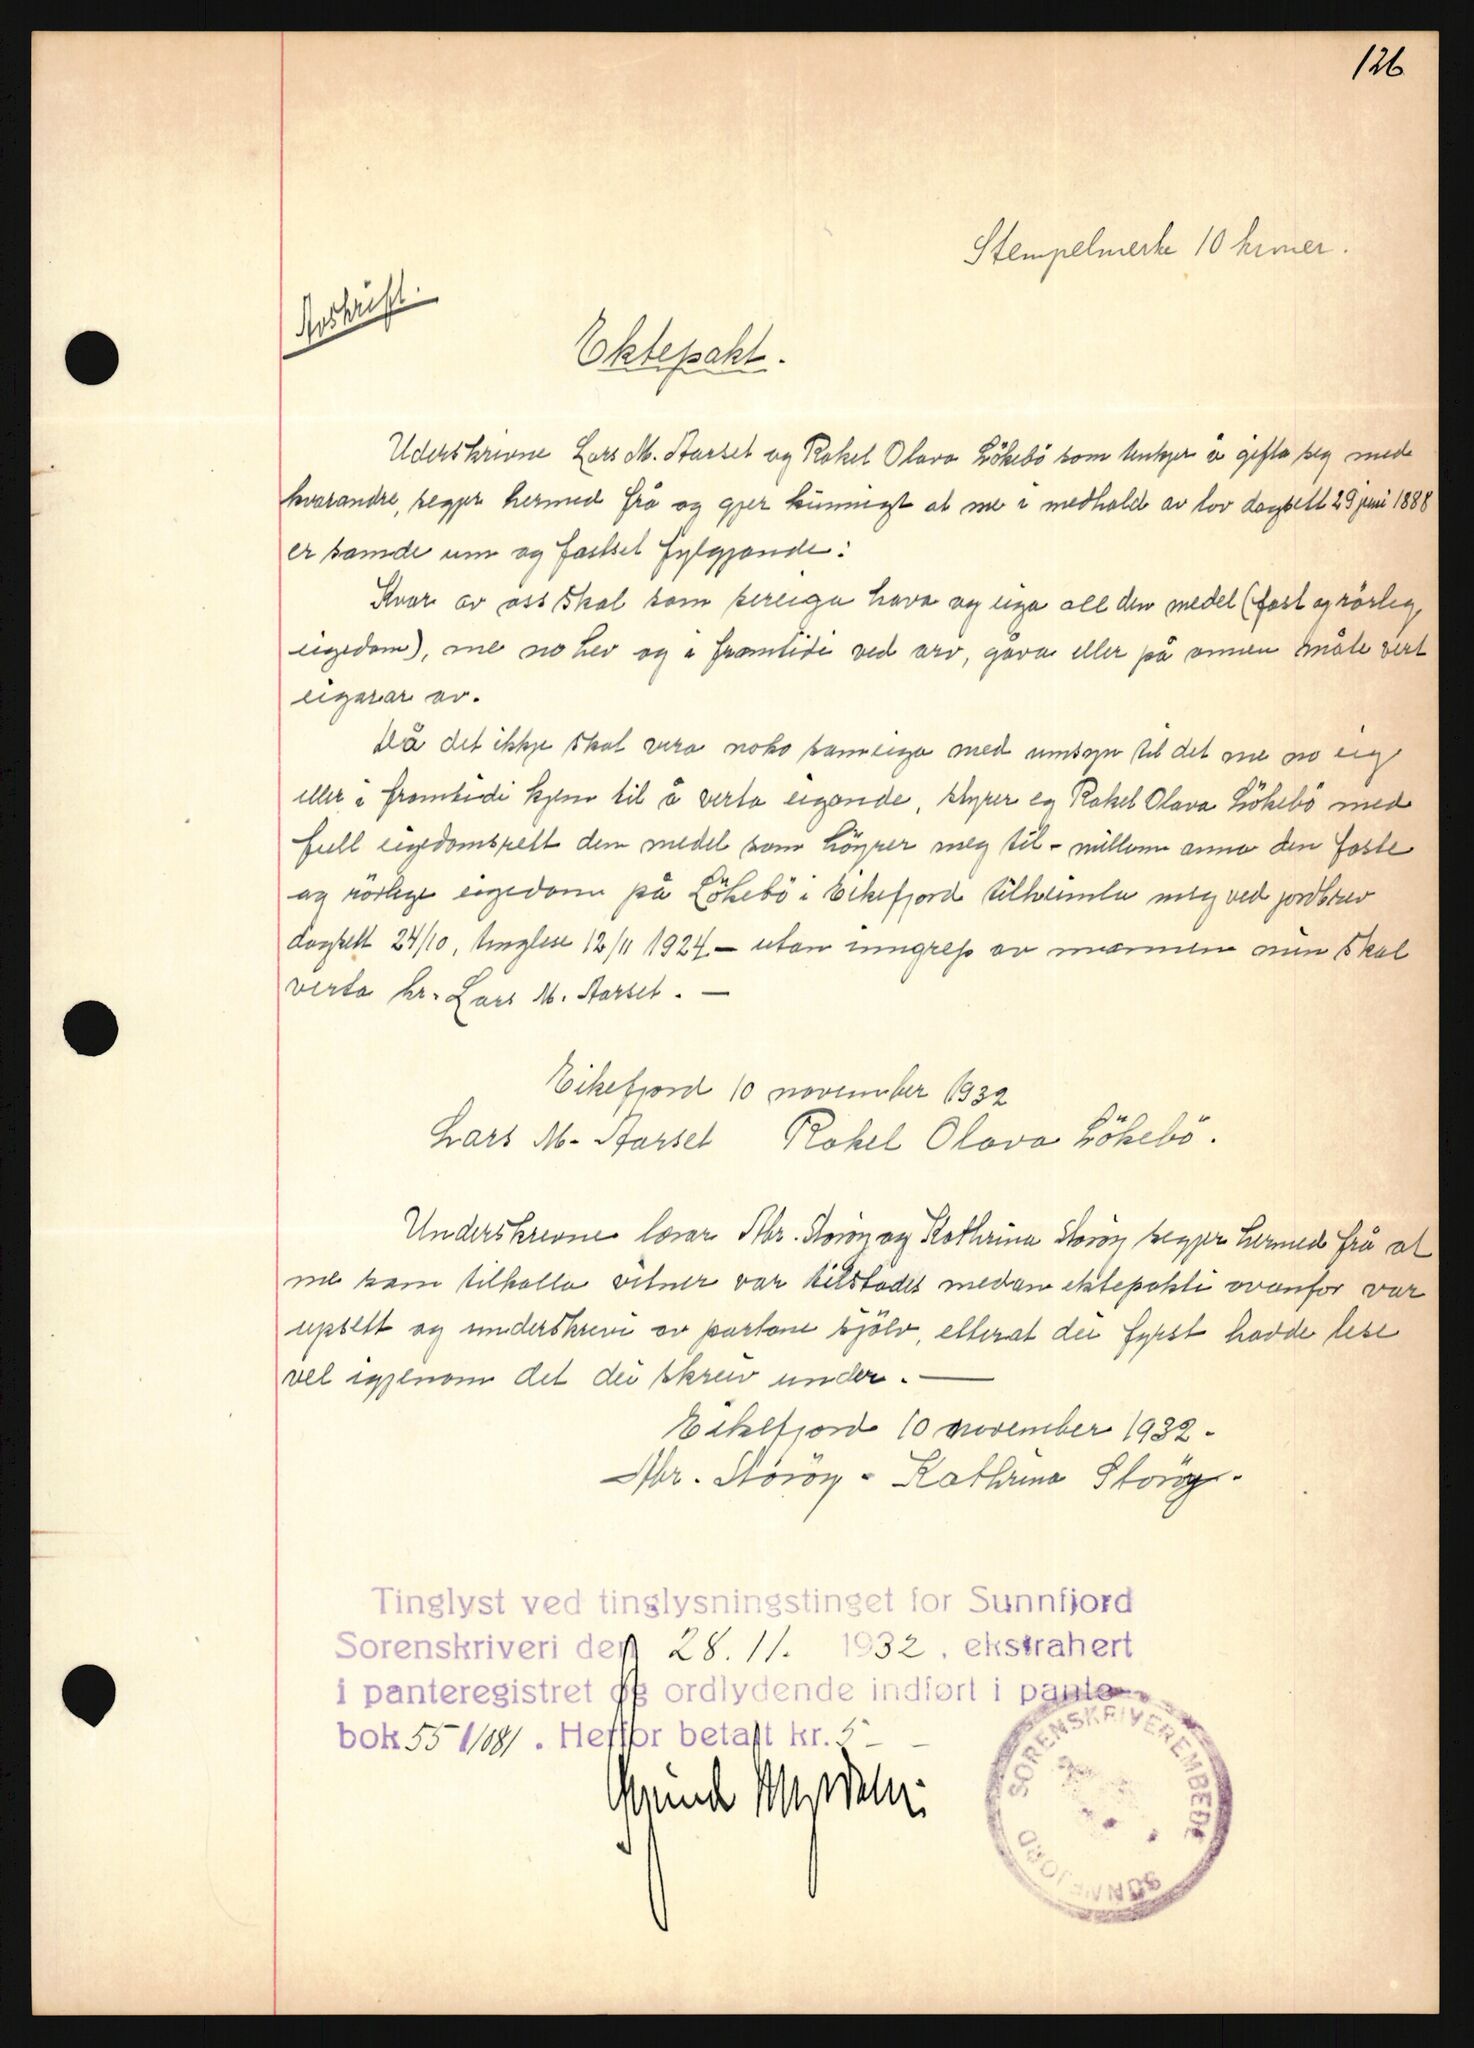 126
Stempelmerke 10 kroner.
Avskrift.
Ektepakt.
Uderskrivne Lars M. Aarset og Rakel Olava Løkebö som tenkjer å gifta seg med
kvarandre, segjer hermed frå og gjer kunnigt at me i medhald av lov dagsett 29 juni 1888
er samde um og fastset fylgjande:
Kvar av oss skal som sereiga hava og eiga all den medel (fast og rörleg
eigedom), me no hev og i framtidi ved arv, gåva eller på annen måte vert
eigarar av.
Då det ikkje skal vera noko sameiga med umsyn til det me no eig
eller i framtidi kjem til å verta eigande, styrer eg Rakel Olava Lökebö med
full eigedomsrett den medel som höyrer meg til - millom anna den faste
og rörlege eigedom på Lökebö i Eikefjord tilheimla meg ved jordbrev
dagsett 24/10, tinglese 12/11 1924 - utan inngrep av mannen min skal
verta hr. Lars M. Aarset. —
Eikefjord 10 november 1932
Lars M. Aarset Rakel Olava Lökebö.
Underskrevne lærar Abr. Storöy og Kathrina Storöy segjer hermed frå at
me som tilkalla vitner var tilstades medan ektepakti ovanfor var
upsett og underskrevi av partane sjölv, etterat dei fyrst hadde lese
vel igjenom det dei skreiv under. —
Eikefjord 10 november 1932.
Abr. Storöy - Kathrina Storöy.
Tinglyst ved tinglysningstinget for Sunnfjord
Sorenskriveri den 28.11. 1932, ekstrahert
i panteregistret og ordlydende indført i pante-
bok 55 1/1081. Herfor betalt kr. 5 -
SORENSKRIVEREMBEDE
SUNNFJORD